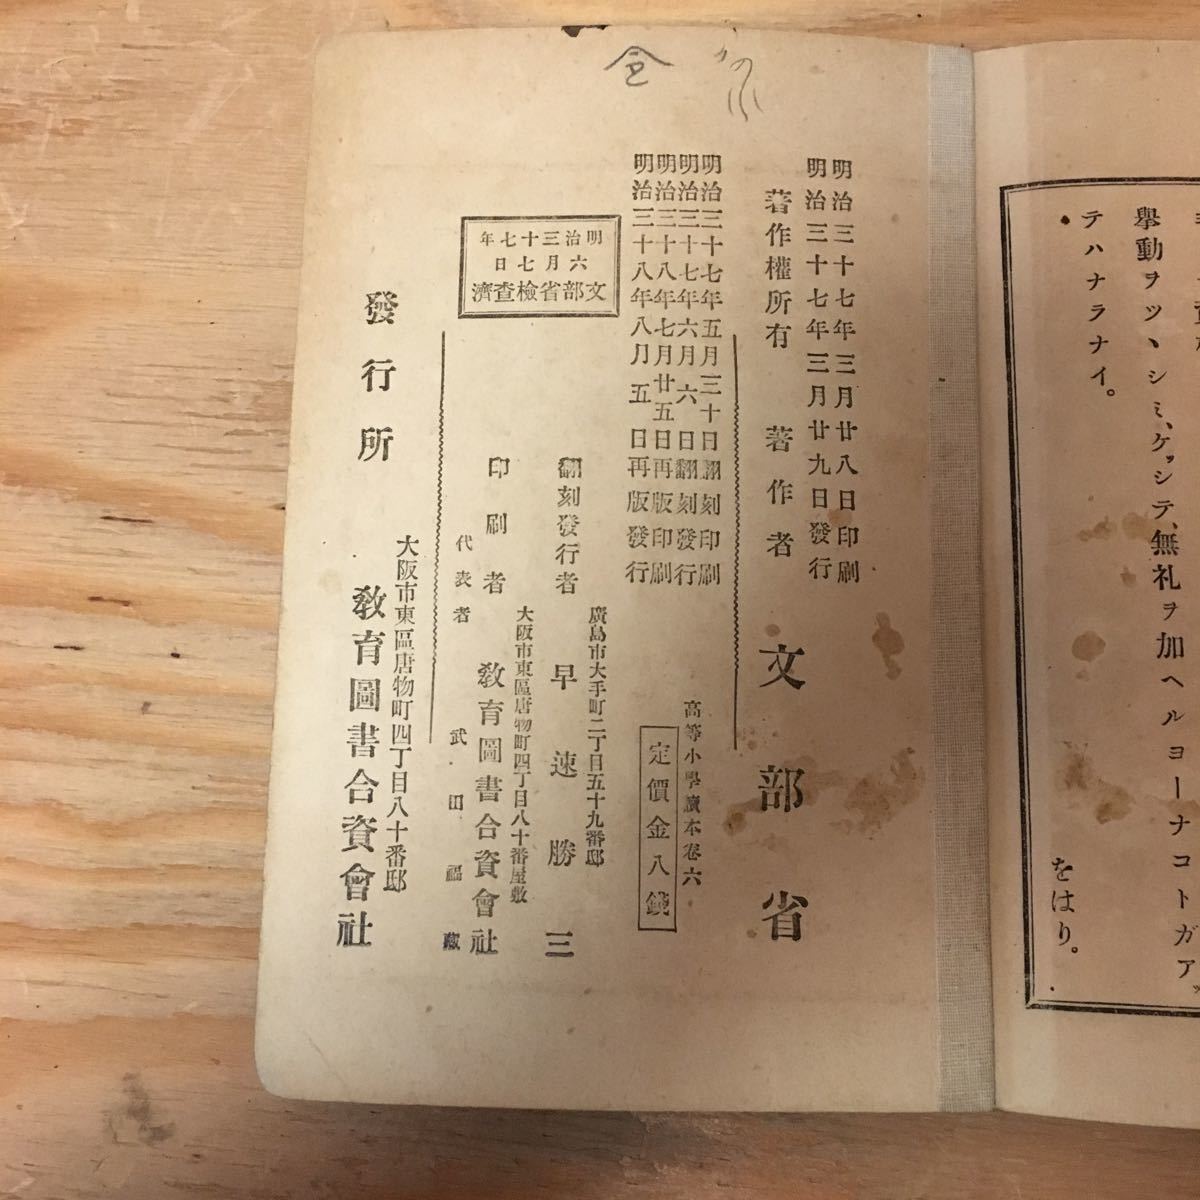 擧動ヲツヽシミ、ケッシテ、無礼ヲ加ヘルヨーナコトガアッ
テハナラナイ。
をはり。
明治三十七年三月廿八日印刷
明治三十七年三月廿九日發行
著作權所有 著作者 文部省
明治三十七年五月三十日翻刻印刷
明治三十七年六月六日翻刻發行
明治三十八年七月廿五日再版印刷
明治三十八年八月五日再版發行
高等小學讀本卷六
定價金八錢
明治三十七年
六月七日
文部省檢査濟
廣島市大手町二丁目五十九番邸
翻刻發行者 早速勝三
大阪市東區唐物町四丁目八十番屋敷
印刷者 敎育圖書合資會社
代表者 武田福藏
大阪市東區唐物町四丁目八十番邸
發行所 敎育圖書合資會社